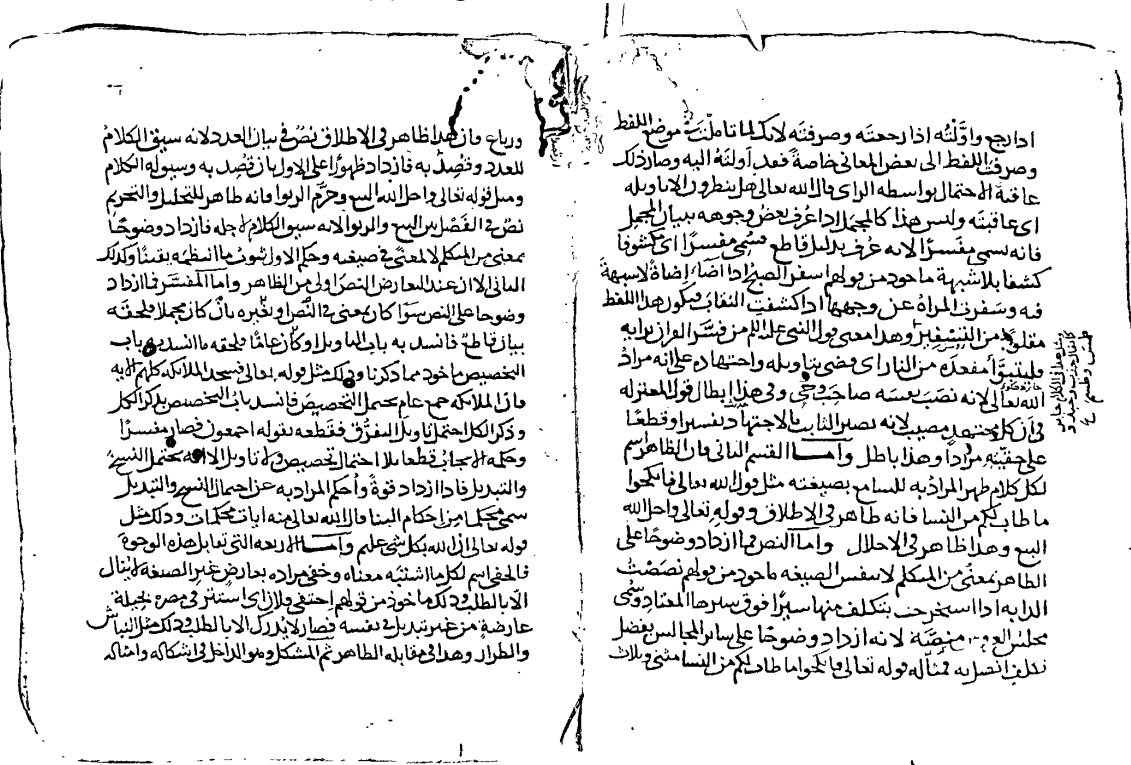 اذا رجع واوّلته اذا رجعته وصرفته لانك لما تاملت موضع اللفظ
وصرفت اللفظ الى بعض المعاني خاصة فقد اولته اليه وصار ذلك
عاقبة الاحتمال بواسطه الراى قال الله تعالى هل ينظرون الا تاويله
اى عاقبته وليس هذا كالمجمل اذا عرف بعض وجوهه ببيان المجمل
فانه يسمى مفسرًا لانه عرف بدليل قاطع فسُمى مفسرًا اى مكشوفا
كشفا بلا شبهة ماخوذ من قولهم اسفر الصبح اذا اضآء اضاةً لا شبهة
فيه وسفرت المراة عن وجهها اذا كشفت النقاب فيكون هذا اللفظ
مقلوبًا من التسفير وهذا معنى قول النبي عليه السلم من فسّر القران برايه
فليتبوّأ مقعده من النار اى قضى بتاويله واجتهاده على انه مراد
الله تعالى لانه نصب نفسه صاحب وحي وفي هذا ابطال قول المعتزله
في ان كل مجتهد مصيب لانه يصير الثابت بالاجتهاد تفسيرا وقطعا
على حقيته مرادًا وهذا باطل وامـا القسم الثاني فان الظاهر اسم
لكل كلام ظهر المراد به للسامع بصيغته مثل قول الله تعالى فانكحوا
ما طاب لكم من النسا فانه ظاهر في الاطلاق وقوله تعالى واحل الله
البيع وهذا ظاهر في الاحلال وامـا النص فما ازداد وضوحًا على
الظاهر بمعنًى من المتكلم لا بنفس الصيغه ماخوذ من قولهم نصصت
الدابه اذا استخرجت بتكلف منها سيرًا فوق سيرها المعتاد وسُمى
مجلس العروس منصّة لانه ازداد وضوحًا على ساير المجالس بفضل
تكلف اتصل به فمثاله قوله تعالى فانكحوا ما طاب لكم من النسا مثنى وثلاث
ورباع فان هذا ظاهر في الاطلاق نصّ في بيان العدد لانه سيق الكلام
للعدد وقُصِد به فازداد ظهورًا على الاول بان قُصِد به وسيق له الكلام
ومثل قوله تعالى واحل الله البيع وحرّم الربوا فانه ظاهر للتحليل والتحريم
نصّ في الفصل بين البيع والربوا لانه سيق الكلام لاجله فازداد وضوحًا
بمعنى من المتكلم لا لمعنًى في صيغته وحكم الاول ثبوت ما انتظمه يقينًا وكذلك
الثاني الا ان عند التعارض النص اولى من الظاهر وامـا المفسَّر فما ازداد
وضوحا على النص سوا كان بمعنى في النصّ او بغيره بان كان مجملا فلحقه
بيان قاطع فانسد به باب التاويل او كان عامًّا فلحقه ما انسد به باب
التخصيص ماخوذ مما ذكرنا وذلك مثل قوله تعالى فسجد الملائكه كلهم الايه
فان الملائكه جمع عام يحتمل التخصيص فانسد باب التخصيص بذكر الكل
وذكر الكل احتمل تاويل التفرّق فقطعه بقوله اجمعون فصار مفسرًا
وحكمه الايجاب قطعا بلا احتمال تخصيص ولا تاويل الا انه يحتمل النسخ
والتبديل فاذا ازداد قوةً واُحكم المراد به عن احتمال النسخ والتبديل
سمى محكما من احكام البنا قال الله تعالى منه ايات محكمات وذلك مثل
قوله تعالى ان الله بكل شى عليم وامـا الاربعه التي تقابل هذه الوجوه
فالخفى اسم لكل ما اشتبه معناه وخفى مراده بعارض غير الصيغه لا ينال
الا بالطلب وذلك ماخوذ من قولهم اختفى فلان اى استتر في مصره بحيلة
عارضة من غير تبديل في نفسه فصار لا يدرك الا بالطلب وذلك مثل النباش
والطرار وهذا في مقابله الظاهر ثم المشكل وهو الداخل في اشكاله وامثاله